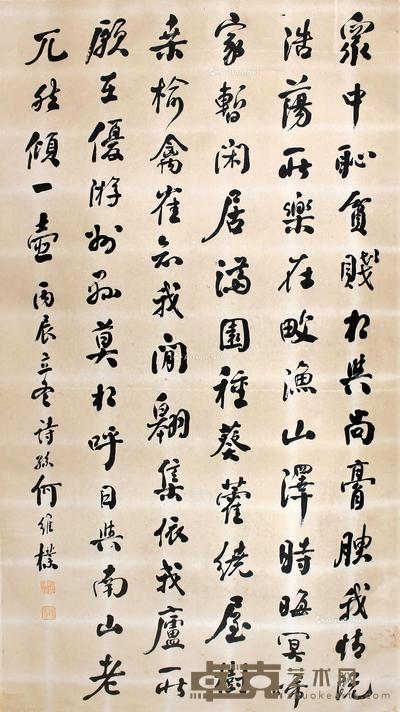 眾中恥貧賤相與尚膏腴我情既
浩蕩所樂在畋漁山澤時晦冥歸
家暫闲居滿園種葵藿繞屋樹
桑榆禽雀知我閒翱集依我廬所
願在優游州縣莫相呼日與南山老
兀然傾一壺 丙辰立冬詩孫何維樸
卓克艺术网